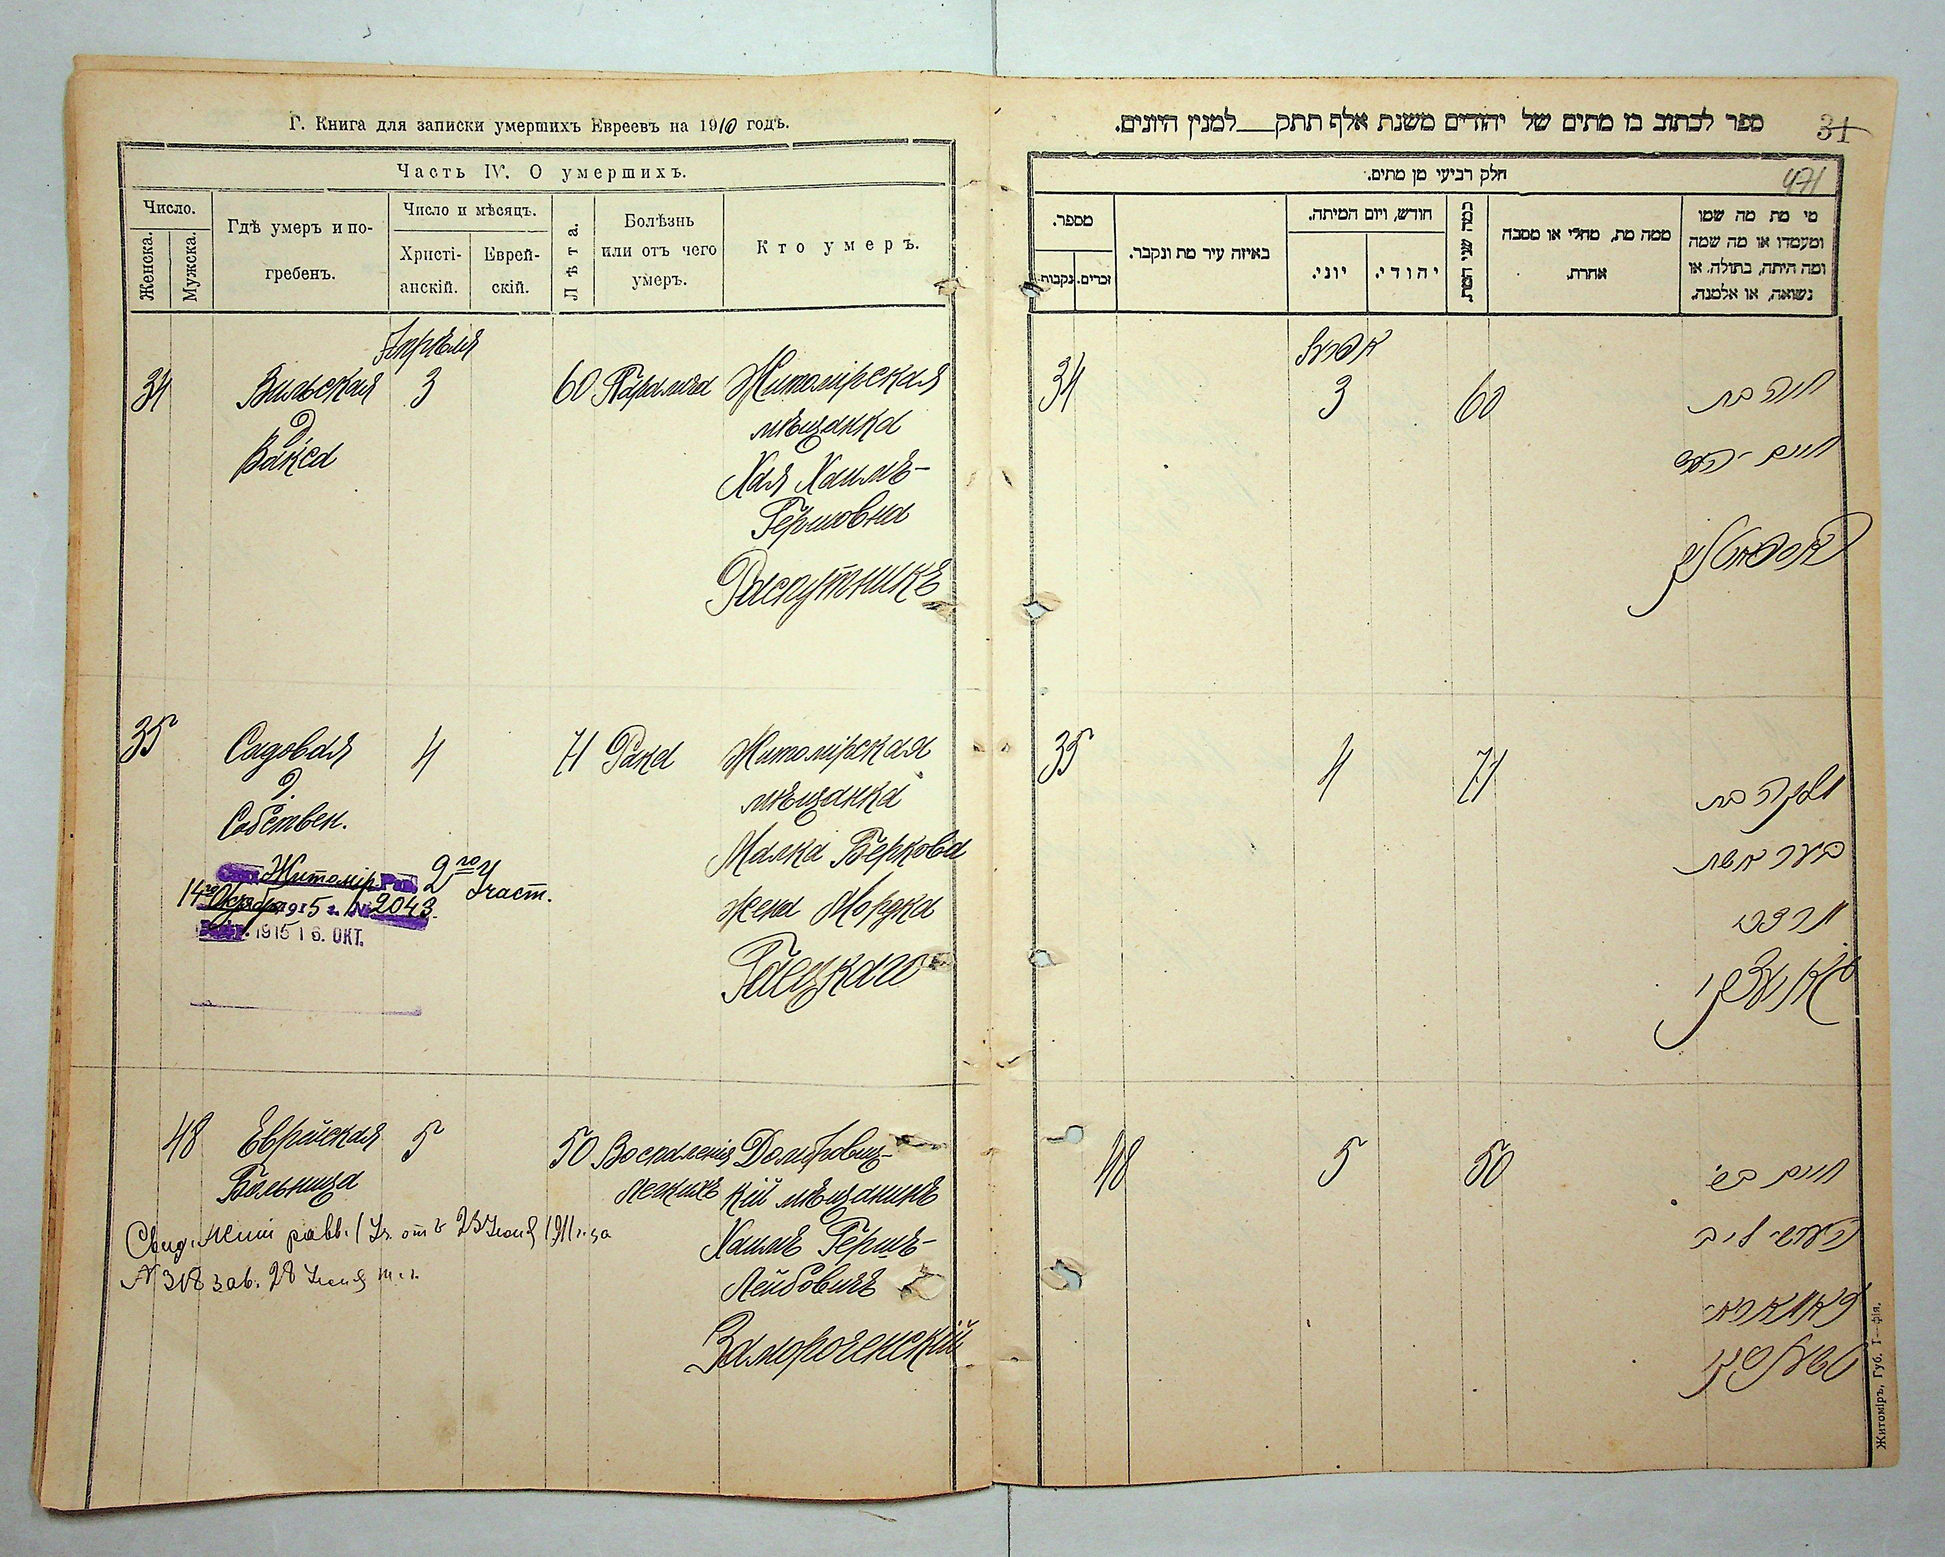 Г. Книга для записки умершихъ Евреевъ на 1910 годъ.
Часть IV. О умершихъ.
Число.
Женска.
Мужска.
Гдѣ умеръ и по-
гребенъ.
Число и мѣсяцъ.
Христі-
анскій.
Еврей-
скій.
Лѣта.
Болѣзнь
или отъ чего
умеръ.
Кто умеръ.
Апрѣля
34 Вильская 3 60 Параличъ Житомірская
д. мѣщанка
Вакса Хая Хаимъ-
Гершовна
Распутникъ
35 Садовая 4 71 Рака Житомірская
д. мѣщанка
Собствен. Малка Беркова
жена Мордка
Гаецкаго
Житомір. Рав. 2го Участ.
14го Октября 1915 г. № 2043.
1915 16. ОКТ.
48 Еврейская 5 50 Воспаленія Домбровиц-
Больница легкихъ кій мѣщанинъ
Хаимъ Гершъ-
Лейбовичъ
Замороченскій
равв. 1 Уч. отъ 23 Іюня 1911 г. за
N 318 зав. 28 Іюня т. г.
ספר לכתוב בו מתים של יהודים משנת אלף תתק___למנין היונים.
31
471
חלק רביעי מן מתים.
מספר.
זכרים.
נקבות.
באיזה עיר מת ונקבר.
חודש, ויום המיתה.
יוני.
יהודי.
כמה שני המת
ממה מת, מחלי או מסבה
אחרת.
מי מת מה שמו
ומעמדו או מה שמה
ומה היתה, בתולה, או
נשואה, או אלמנה.
אפריל
34 3 60 חיה בת
חיים הערש
35 4 71 מלקה בת
בער אשת
מרדכי
48 5 50 חיים בר
הערש ליב
Житоміръ, Губ. Т—фія.